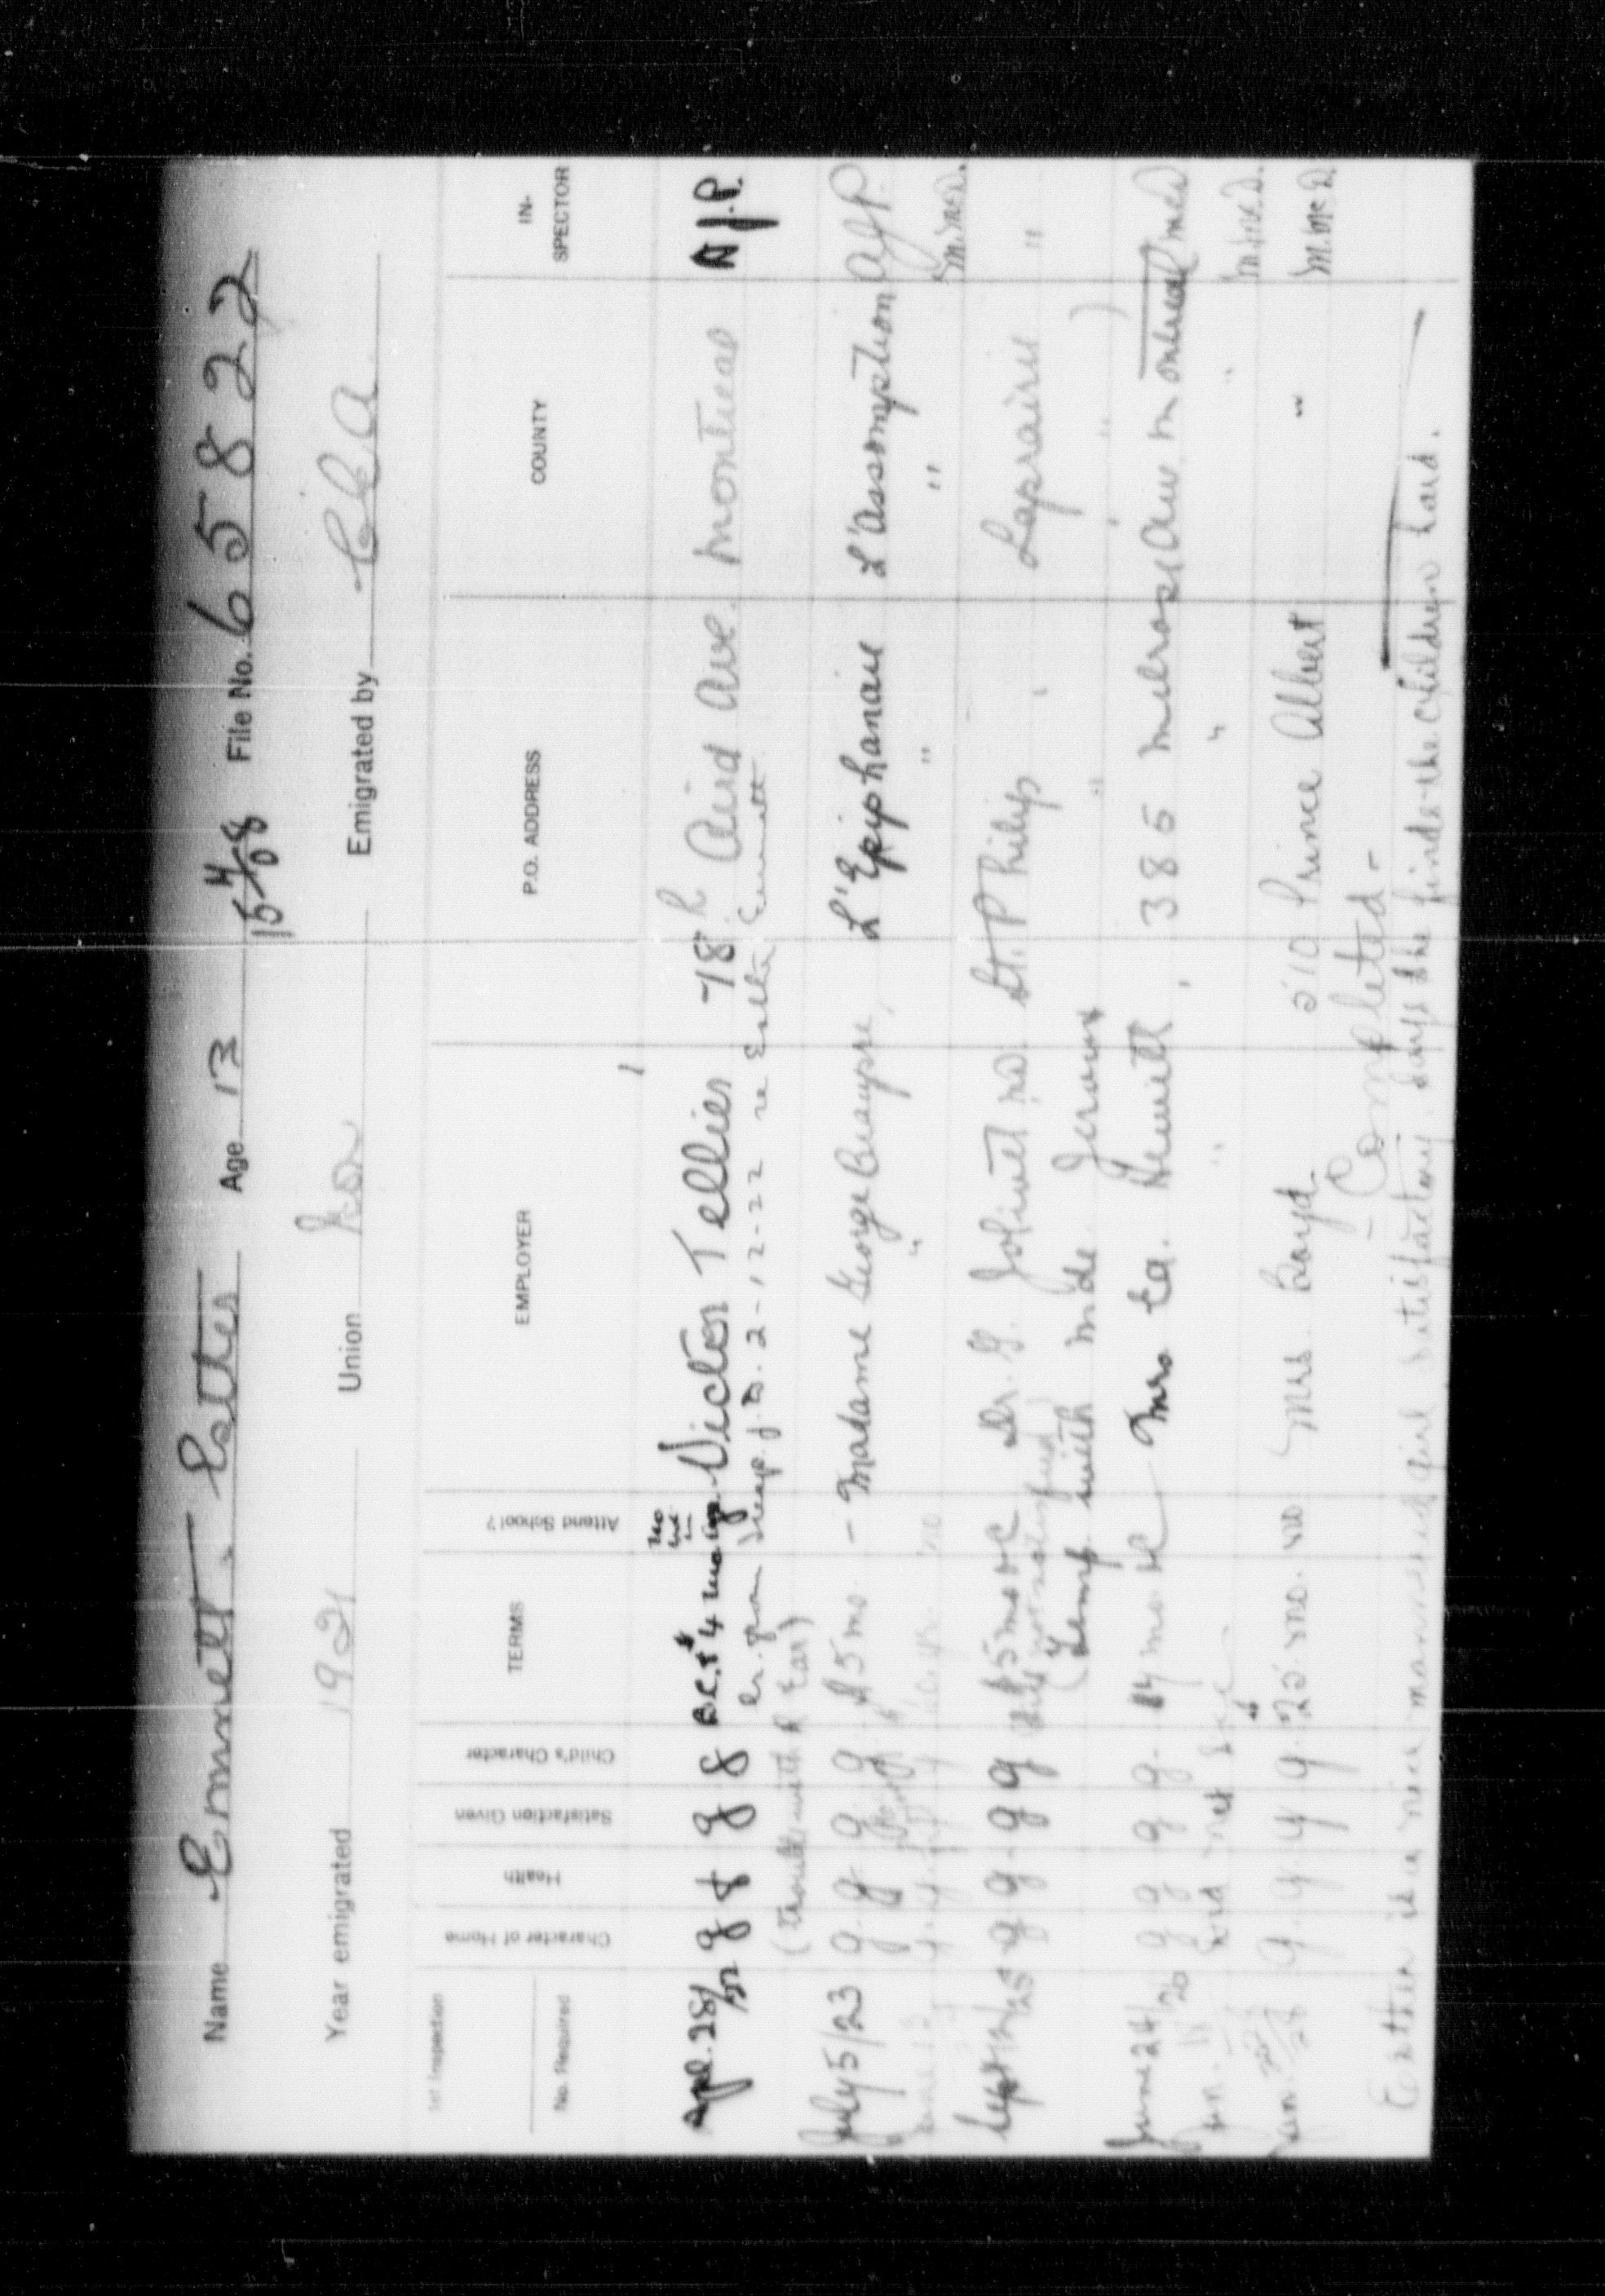 Name Emmett, Esther Age 13 File No. 65822
15/4/08
Year emigrated 1921 Union Non Emigrated by C.E.A
1st Inspection
No. Required
Character of Home
Health
Satisfaction Given
Child's Character
TERMS
Attend School?
EMPLOYER
P.O. ADDRESS
COUNTY
IN-SPECTOR
Apl. 28/22 g f g g B.C. + $4 mo Victor Tellier 78 Aird Ave. Montreal A.J.P.
J.B. 2-12-22 re Esther Emmett
(trouble with R Ear)
July 5/23 g g g g $5 mo - Madame George Beaupre, L'Epiphanie L'Assomption AJP.
" " " M. McD.
Sept 25 g g g g $15 mo + C Dr. G. Jolivet St. Philip Laprairie "
(Temp with Mde Jerome " " )
June 24/26 g g g g 14 mo + C Mrs Ed. Hewitt, 386 Melrose Ave Montreal McD
" " " M. McD.
Jan. g g g g 25 mo. no Mrs. Boyd 510 Prince Albert " M. McD.
- Completed -
Esther is a nice mannered girl satisfactory. Says she finds the children hard.